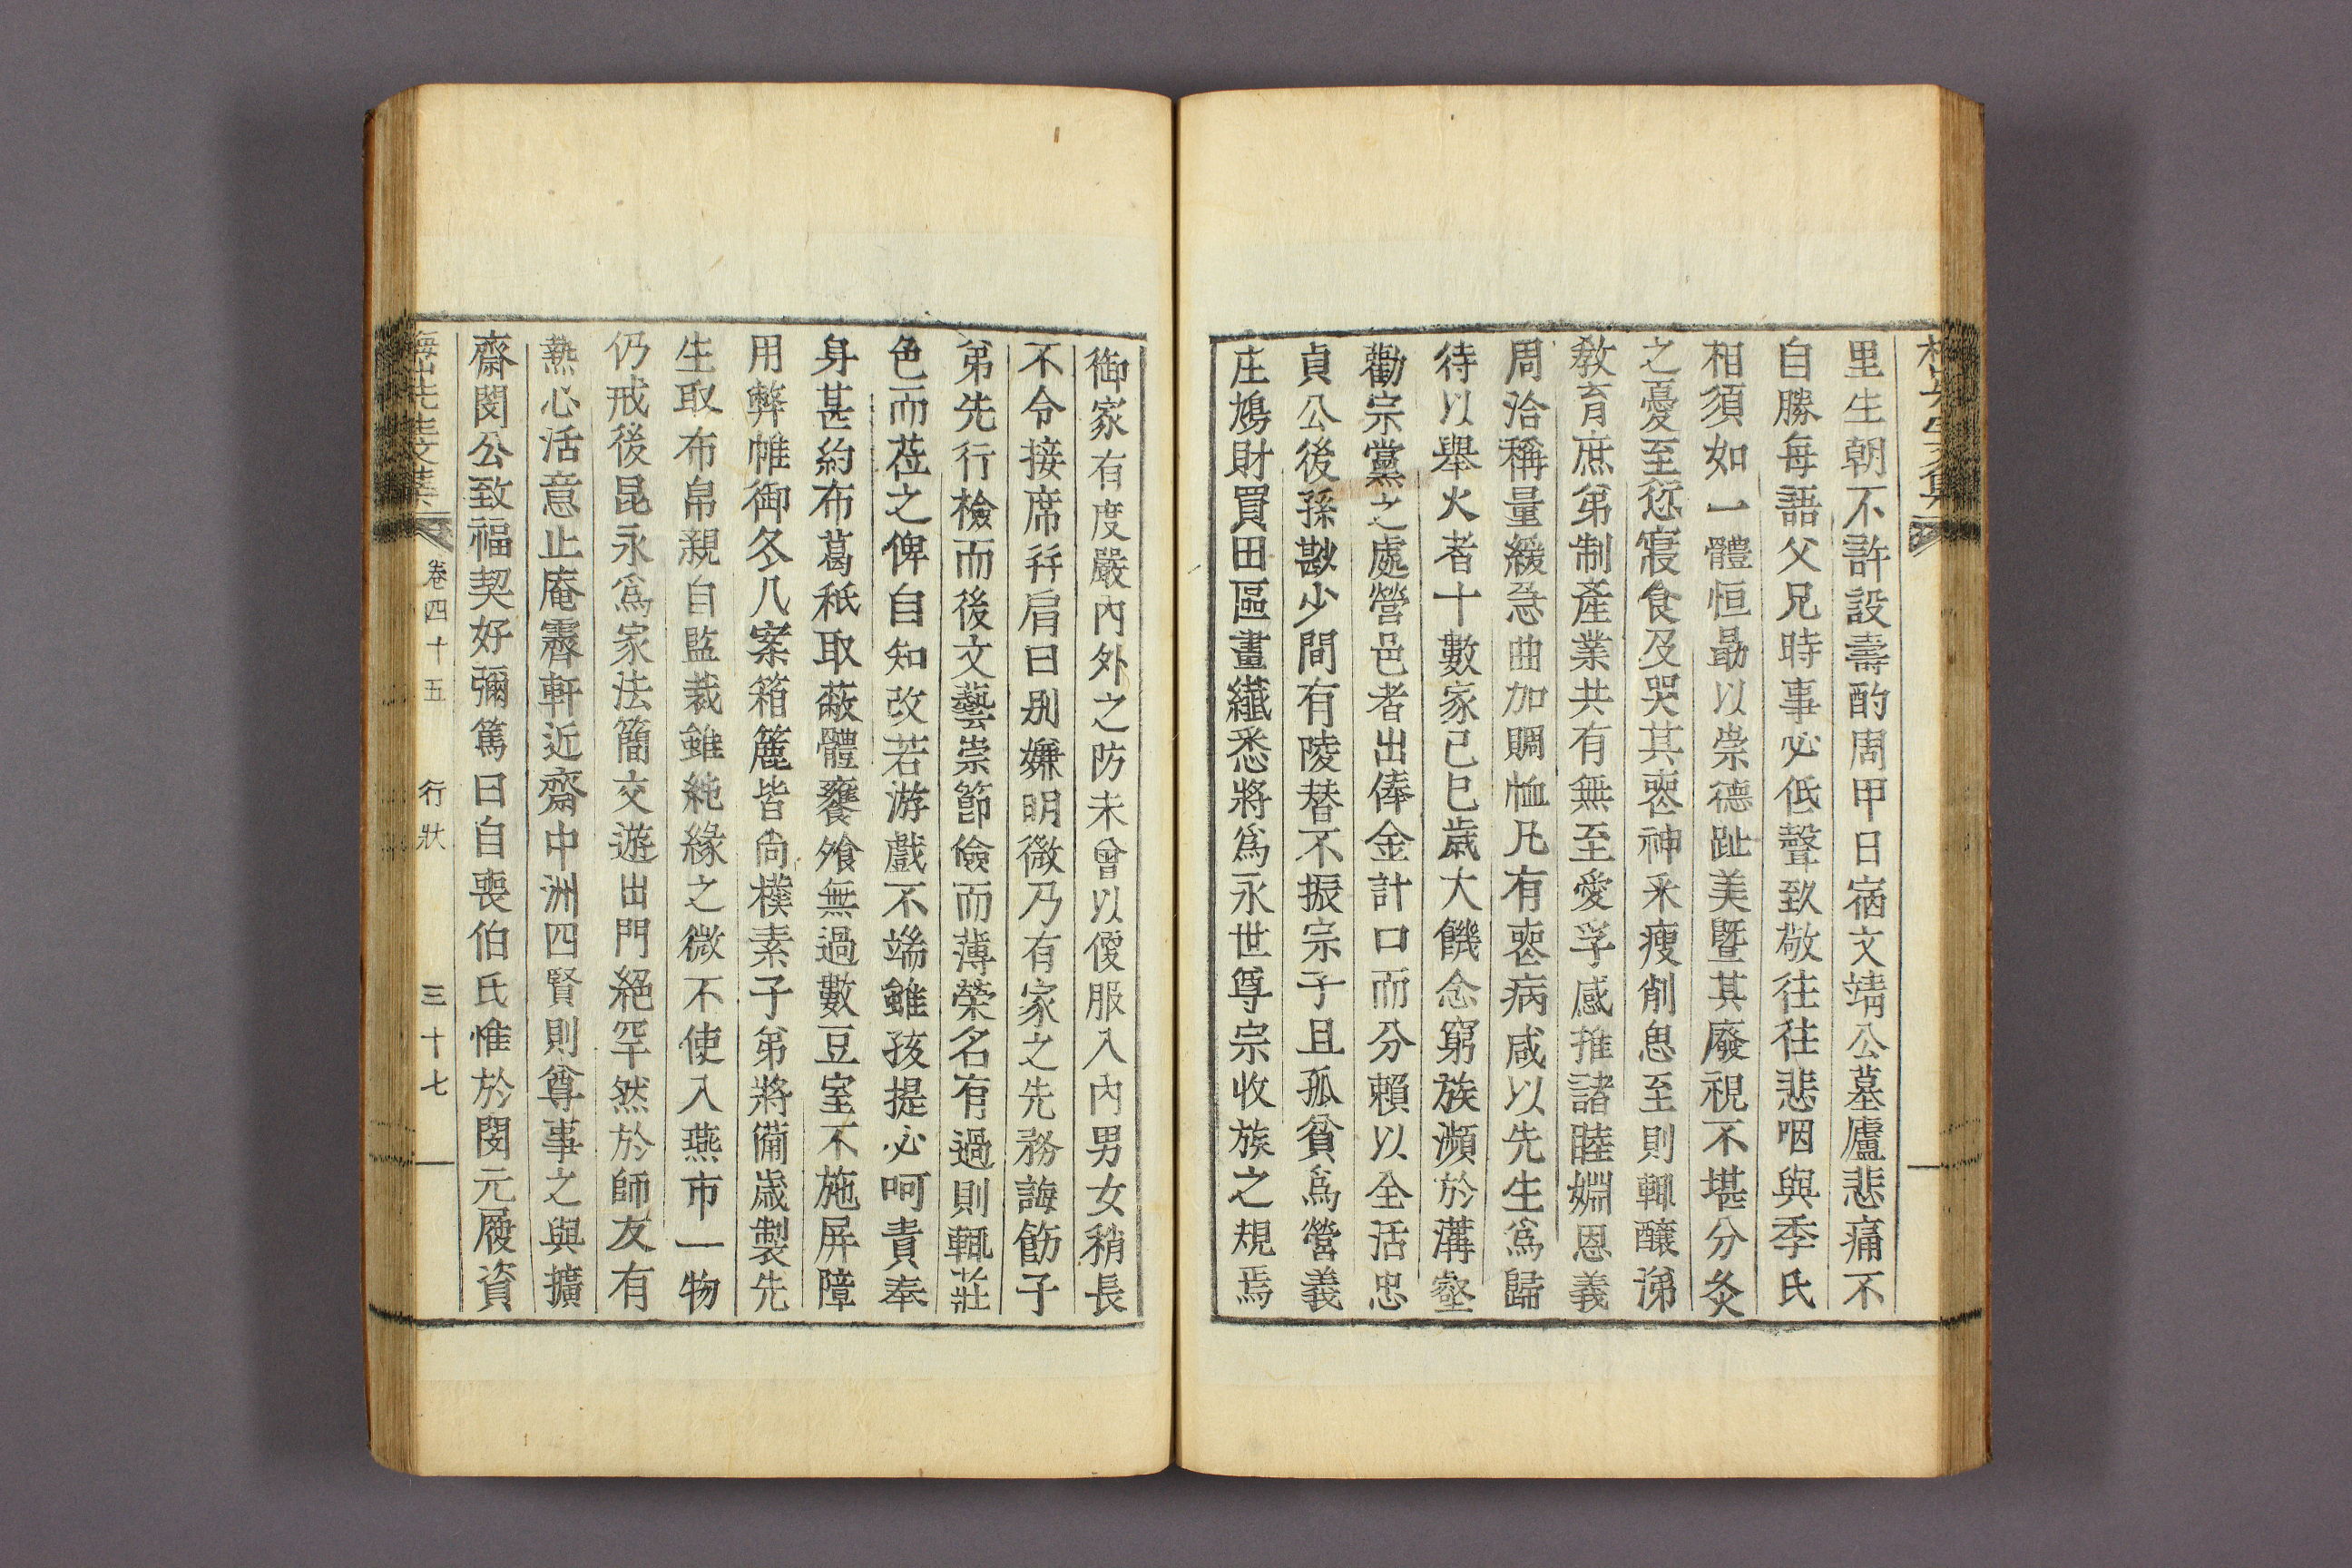 里生朝不許設壽酌周甲日宿文靖公墓廬悲痛不
自勝每語父兄時事必低聲致敬往往悲咽與季氏
相須如一體恒勗以崇德趾美曁其廢視不堪分灸
之憂至忘寢食及哭其喪神釆瘦削忌至則輒釀涕
敎育庶弟制產業共有無至愛孚感推諸睦婣恩義
周洽稱量緩急曲加賙恤凡有喪病咸以先生爲歸
待以擧火者十數家己巳歲大饑念窮族瀕於溝壑
勸宗黨之處營邑者出俸金計口而分賴以全活忠
貞公後孫尠少間有陵替不振宗子且孤貧爲營義
庄鳩財買田區畫纖悉將爲永世尊宗收族之規焉
御家有度嚴內外之防未曾以傻服入內男女稍長
不令接席幷肩曰別嫌明微乃有家之先務誨飭子
弟先行檢而後文藝崇節儉而薄榮名有過則輒莊
色而莅之俾自知改若游戲不端雖孩提必呵責奉
身甚約布葛秖取蔽體饔飧無過數豆室不施屛障
用弊帷御冬几案箱簏皆尙樸素子弟將備歲製先
生取布帛親自監裁雖純緣之微不使入燕市一物
仍戒後昆永爲家法簡交遊出門絕罕然於師友有
熱心活意止庵霽軒近齋中洲四賢則尊事之與擴
齋閔公致福契好彌篤曰自喪伯氏惟於閔元履資
卷四十五 行狀 三十七